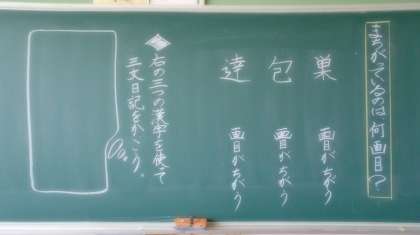 まちがっているのは何画目？
巣　画目がちがう
包　画目がちがう
達　画目がちがう
右の三つの漢字を使って
三文日記をかこう。